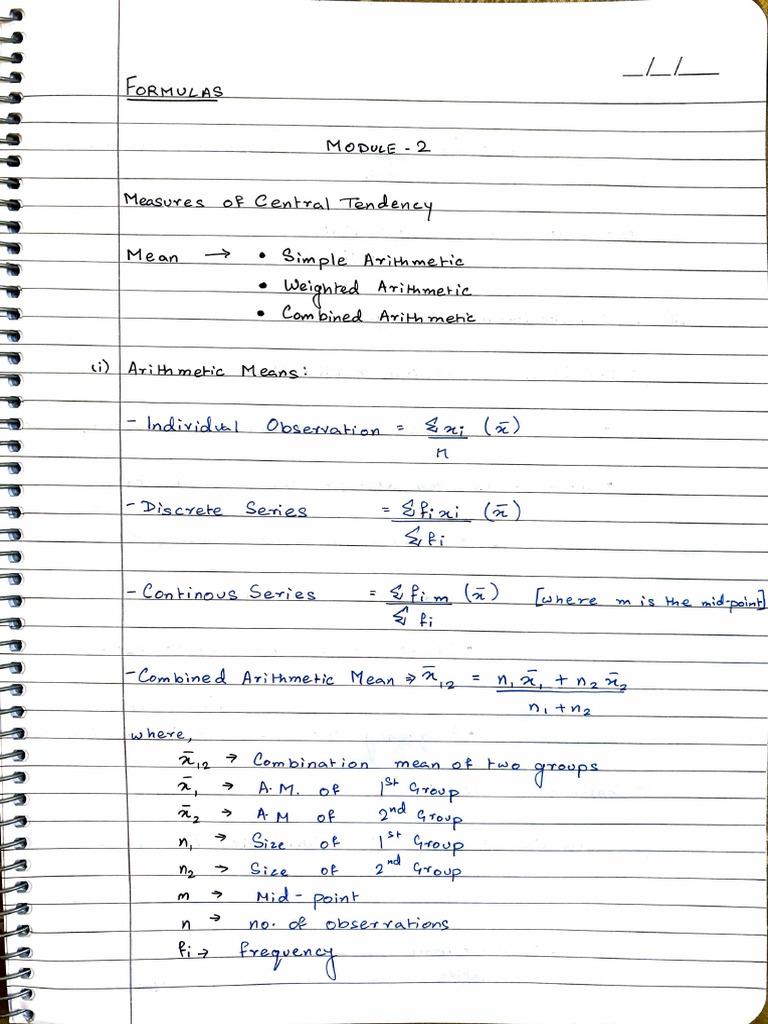 _/_/__
FORMULAS
MODULE - 2
Measures of Central Tendency
Mean → • Simple Arithmetic
• Weighted Arithmetic
• Combined Arithmetic
(i) Arithmetic Means:
- Individual Observation = Σxi (x̄)
n
- Discrete Series = Σfixi (x̄)
Σfi
- Continous Series = Σfim (x̄) [where m is the mid-point]
Σfi
- Combined Arithmetic Mean ⇒ x̄₁₂ = n₁x̄₁ + n₂x̄₂
n₁+n₂
where,
x̄₁₂ → Combination mean of two groups
x̄₁ → A.M. of 1st Group
x̄₂ → AM of 2nd Group
n₁ → Size of 1st Group
n₂ → Size of 2nd Group
m → Mid-point
n → no. of observations
fi → frequency